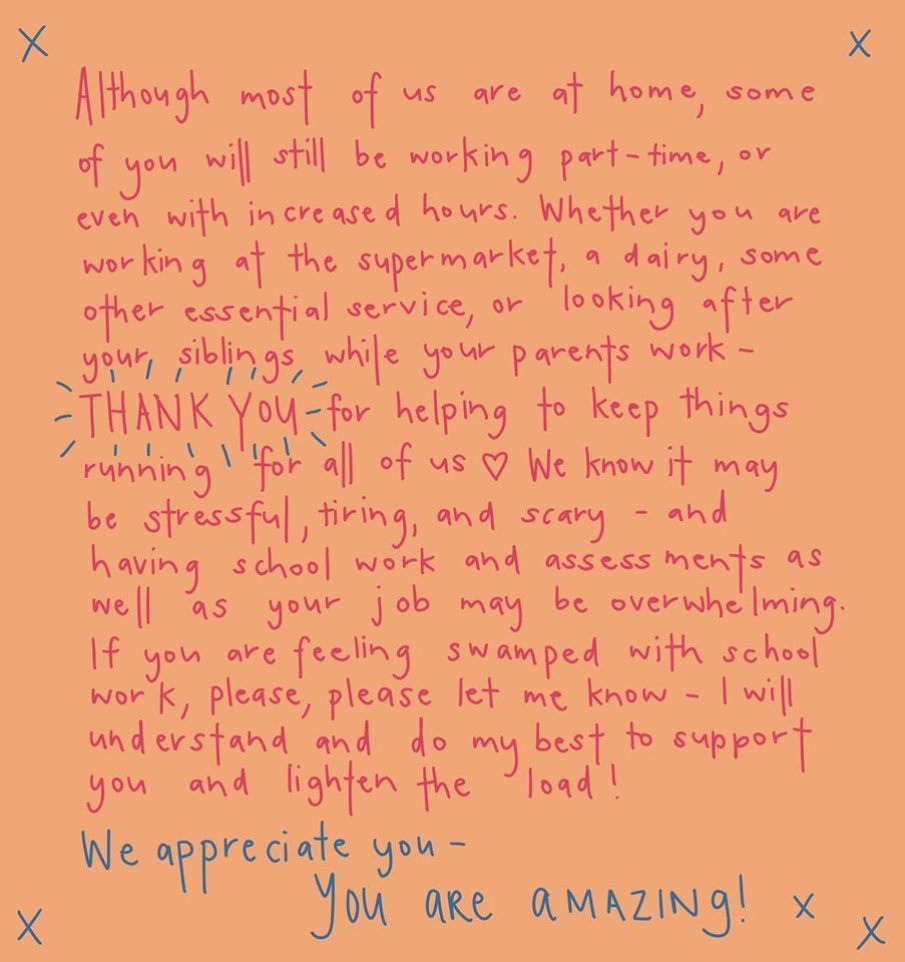 x x
Although most of us are at home, some
of you will still be working part-time, or
even with increased hours. Whether you are
working at the supermarket, a dairy, some
other essential service, or looking after
your siblings while your parents work -
THANK YOU for helping to keep things
running for all of us ♡ We know it may
be stressful, tiring, and scary - and
having school work and assessments as
well as your job may be overwhelming.
If you are feeling swamped with school
work, please, please let me know - I will
understand and do my best to support
you and lighten the load!
We appreciate you -
YOU ARE AMAZING! x
x x